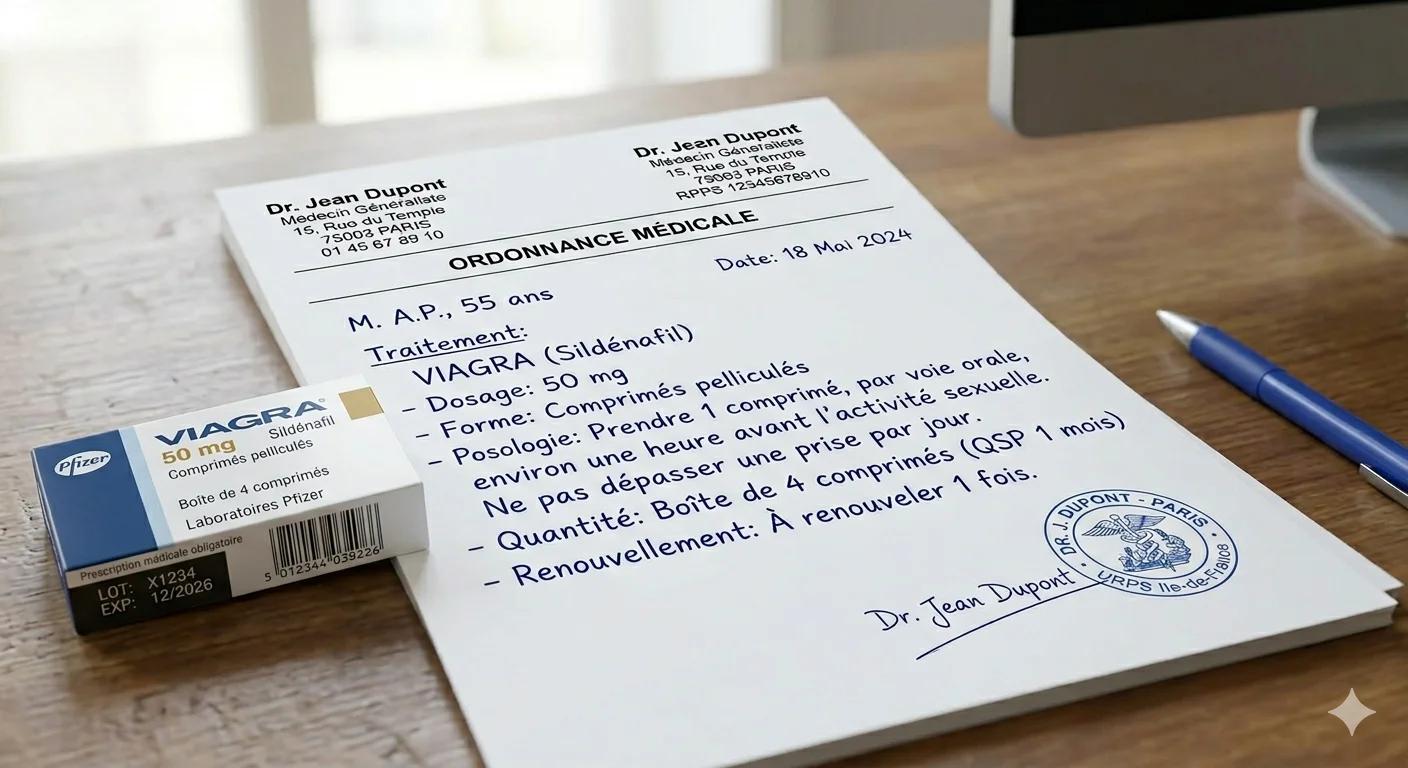 Dr. Jean Dupont
Medecin Générallate
15, Rue du Temple
75003 PARIS
01 45 67 89 10
Dr. Jean Dupont
Médecin Généraliste
15, Rue du Temple
75003 PARIS
RPPS 12345678910
ORDONNANCE MÉDICALE
Date: 18 Mai 2024
M. A.P., 55 ans
Traitement:
VIAGRA (Sildénafil)
- Dosage: 50 mg
- Forme: Comprimés pelliculés
- Posologie: Prendre 1 comprimé, par voie orale,
environ une heure avant l'activité sexuelle.
Ne pas dépasser une prise par jour.
- Quantité: Boîte de 4 comprimés (QSP 1 mois)
- Renouvellement: À renouveler 1 fois.
Dr. Jean Dupont
DR. J. DUPONT - PARIS
URPS Ile-de-France
Pfizer
VIAGRA®
50 mg Sildénafil
Comprimés pelliculés
Boîte de 4 comprimés
Laboratoires Pfizer
Prescription médicale obligatoire
LOT: X1234
EXP: 12/2026
5 012344 039226